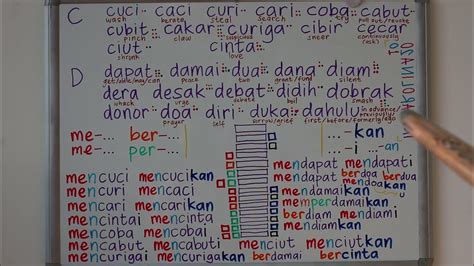 C cuci caci curi cari coba cabut
wash berate steal search try pull out/revoke
cubit cakar curiga cibir cecar
pinch claw suspicious sneer continuously (ask)
ciut cinta
shrink love
D dapat damai dua dang diam
get/able/may/can peace two silent
dera desak debat didih dobrak
whack urge debate boil smash
donor doa diri duka dahulu
prayer self sorrow/grief first/before/formerly/ago
in advance/previously
me-... ber-... ...-kan
me-... per-... ...-i ...-an
mencuci mencucikan mendapat mendapati
mencuri mencaci mendua berdoa berdua
mencari mencarikan mendoakan
mencintai mencinta mendamaikan
mencoba mencobai memperdamaikan
mencabut mencabuti menciut menciutkan
mencurigai mencurigakan berdamai bercinta
berdiam mendiami
mendiamkan